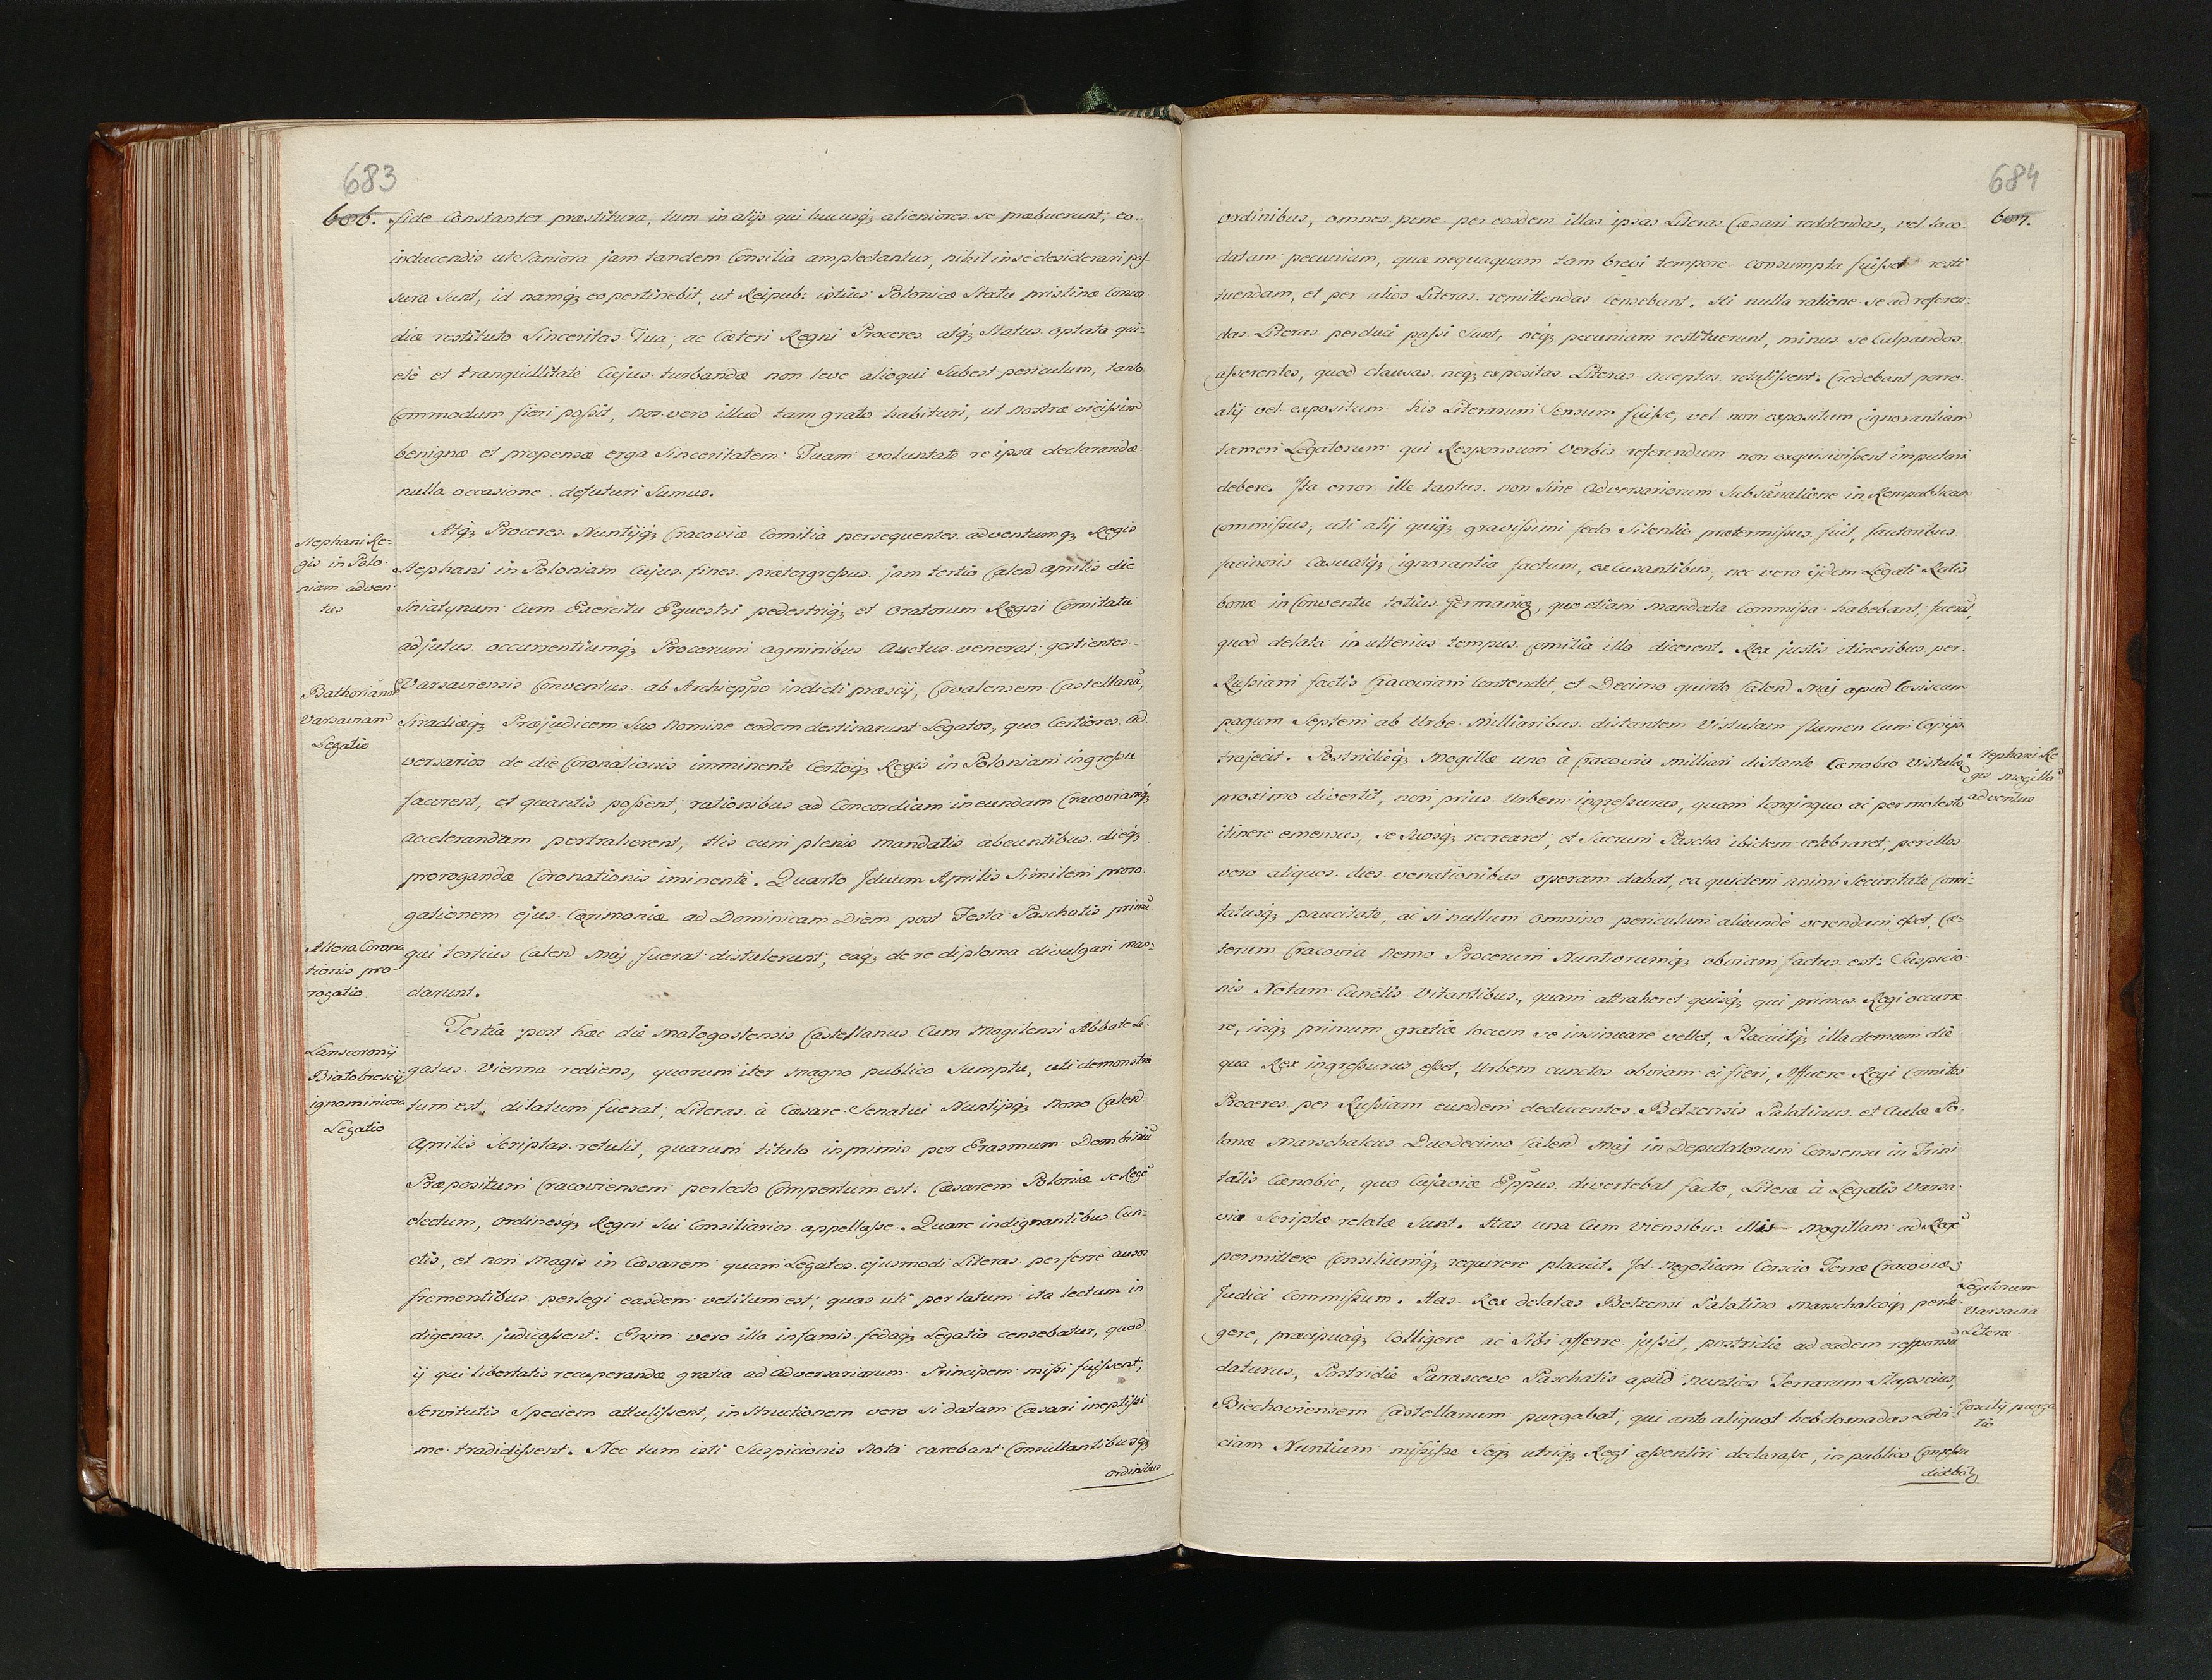 683
606.
fide Constanter præstitura, tum in alijs qui hucusq; alieniores se præbuerunt, eo
inducendis ut Saniora jam tandem Consilia amplectantur, nihil in se desiderari pas
sura sunt, id namq; eo pertinebit, ut Reipub: istius Polonicæ Statu pristinæ Concor
diæ restituto Sinceritas Tua, ac Cæteri Regni Proceres atq; Status optata qui=
ete et tranquillitate Cujus turbandæ non leve alioqui Subest periculum, tanto
Commodum fieri possit, nos vero illud tam grato habituri, ut nostræ vicissim
benignæ et propensæ erga Sinceritatem Tuam voluntate re ipsa declarandæ
nulla occasione defuturi Sumus.
Stephani Re=
gis in Polo
niam adven
tus
Atq; Proceres Nuntijq; Cracoviæ Comitia persequentes adventumq; Regis
Stephani in Poloniam Cujus fines prætergressus jam tertio Calend Aprilis die
Sniatynum Cum Exercitu Equestri pedestriq; et Oratorum Regni Comitatu
adjutus occurrentiumq; Procerum agminibus Auctus venerat, gestientes
Bathorianor
Varsaviam
Legatio
Varsaviensis Conventus ab Archieppo indicti præscij, Covalensem Castellanū,
Siradiæq; Præjudicem Suo Nomine eodem destinarunt Legatos, quo Certiores ad
versarios de die Coronationis imminente Certoq; Regis in Poloniam ingressu
facerent, et quantis possent, rationibus ad Concordiam ineundam Cracoviamq;
accelerandum pertraherent, His cum plenis mandatis abeuntibus dieq;
prorogandæ Coronationis iminente. Quarto Iduum Aprilis Similem proro
gationem ejus Cærimoniæ ad Dominicam Diem post Festa Paschatis primū
Altera Corona
tionis pro=
rogatio
qui tertius Calend Maj fuerat distulerunt, eaq; de re diploma divulgari man=
darunt.
Tertia post hæc die Malogostensis Castellanus Cum Mogilensi Abbate Le=
Lanscoronij
Biatobrescij
ignominiosa
Legatio
gatus Vienna rediens, quorum iter magno publico Sumptu, uti demonstra
tum est, dilatum fuerat, Literas à Cæsare Senatui Nuntijsq; Nono Calend
Aprilis Scriptas retulit, quarum titulo inprimis per Erasmum Dembiniū
Præpositum Cracoviensem perlecto Compertum est: Cæsarem Poloniæ se Regē
electum, Ordinesq; Regni Sui Consiliarios appellasse. Quare indignantibus Cun=
ctis, et non magis in Cæsarem quam Legatos ejusmodi Literas perferre ausos
frementibus perlegi easdem vetitum est, quas uti per latum ita lectum in
digenas judicassent. Enim vero illa infamis fedaq; Legatio censebatur, quod
ij qui libertatis recuperandæ gratia ad adversariorum Principem missi fuissent,
Servitutis Speciem attulissent, inStructionem vero si datam Cæsari ineptissi
me tradidissent. Nec tum isti Suspicionis Nota carebant Consultantibusq;
ordinibus
684
607.
ordinibus, omnes pene per eosdem illas ipsas Literas Cæsari reddendas, vel loco
datam pecuniam, quæ nequaquam tam brevi tempore consumpta fuisset resti
tuendam, et per alios Literas remittendas Censebant. Hi nulla ratione se ad referen=
das Literas perduci passi Sunt, neq; pecuniam restituerunt, minus se Culpandos
asserentes, quod clausas neq; expositas Literas acceptas retulissent. Credebant porro
alij vel expositum his Literarum Sensum fuisse, vel non expositum ignorantiam
tamen Legatorum qui Responsum Verbis referendum non exquisivissent imputari
debere. Ita error ille tantus non Sine Adversariorum Subsānatione in Rempublicam
Commissus, uti alij quiq; gravissimi fedo Silentio prætermissus fuit, fautoribus
facinoris Casuatq; ignorantia factum, excusantibus, nec vero ijdem Legati Ratis
bonæ in Conventu totius Germaniæ, quo etiam mandata Commissa habebant, fuerāt,
quod delata in ulterius tempus Comitia illa dicerent. Rex justis itineribus per
Russiam factis Cracoviam Contendit, et Decimo quinto Calend Maj apud Cosiscum
pagum Septem ab Urbe Milliaribus distantem Vistulam flumen Cum Copijs
Stephani Re
gis Mogillā
adventus
trajecit. Postridieq; Mogillæ uno à Cracovia milliari distante Cænobio Vistulæ
proximo divertit, non prius Urbem ingressurus, quam longinquo ac permolesto
itinere emensus, se Suosq; recrearet, et Sacrum Pascha ibidem celebraret, per illos
vero aliquos dies venationibus operam dabat, ea quidem animi Securitate Comi=
tatusq; paucitate, ac si nullum omnino periculum aliunde verendum esset, Cæ=
terum Cracovia Nemo Procerum Nuntiorumq; obviam factus est: Suspicio=
nis Notam Cunctis Vitantibus, quam attraheret quisq; qui primus Regi occurre
re, inq; primum gratiæ locum se insinuare vellet, Placuitq; illa demum die
qua Rex ingressurus esset, Urbem cunctos obviam ei fieri, Affuere Regi Comites
Proceres per Russiam eundem deducentes Belzensis Palatinus et Aulæ Po
lonæ Marschalcus Duodecimo Calend Maj in Deputatorum Consensu in Trini
tatis Cænobio, quo Cujaviæ Eppus divertebat facto, Literæ à Legatis Varsa
viæ Scriptæ relatæ Sunt. Has una Cum Viensibus illis Mogillam ad Regē
permittere Consiliumq; requirere placuit. Id negotium Conscio Terræ Cracoviæ
Legatorum
Varsavia
Literæ
Judici Commissum. Has Rex delatas Belzensi Palatino Marschalcoq; perle
gere, præcipuaq; Colligere ac Sibi offerre jussit, postridie ad eadem responsū
daturus, Postridie Parasceve Paschatis apud Nuntios Terrarum Slupscius,
Goscilij purga
tio
Biechoviensem Castellanum purgabat, qui ante aliquot hebdomadas Lovi=
ciam Nuntium misisse Seq; utriq; Regi assentiri declarasse, in publico Congressu
dicebatq;